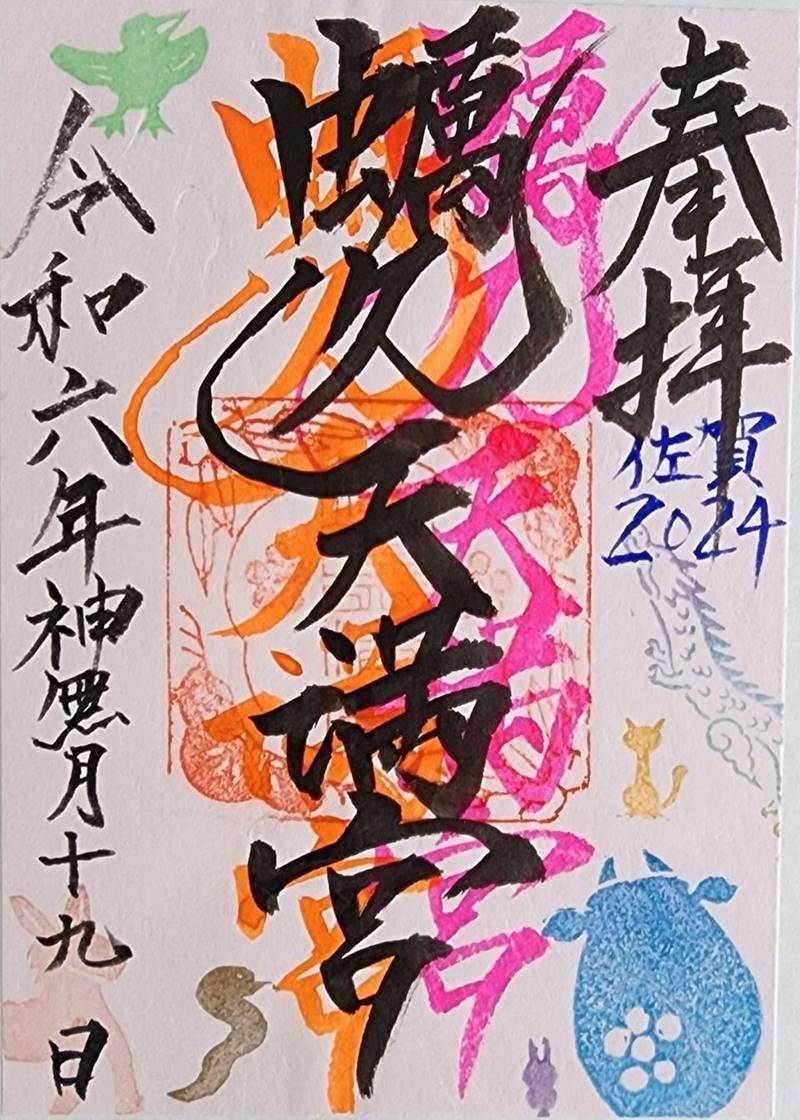 奉拝
佐賀
2024
蠣久天満宮
令和六年神無月十九日